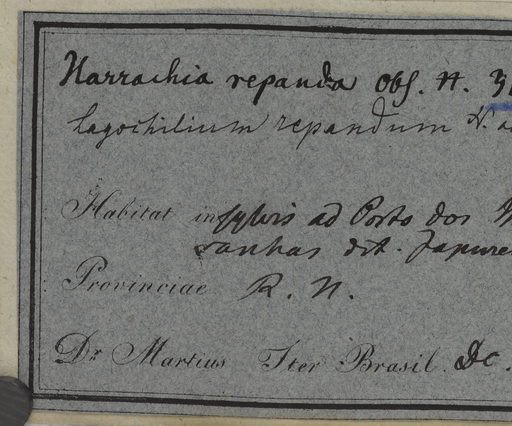 Harrachia repanda Obs. N. 3
Lagochilium repandum N. a
Habitat in sylvis ad Porto dos M
ranhas dit. Japure
Provinciae R. N.
Dr Martius Iter Brasil. Dc.